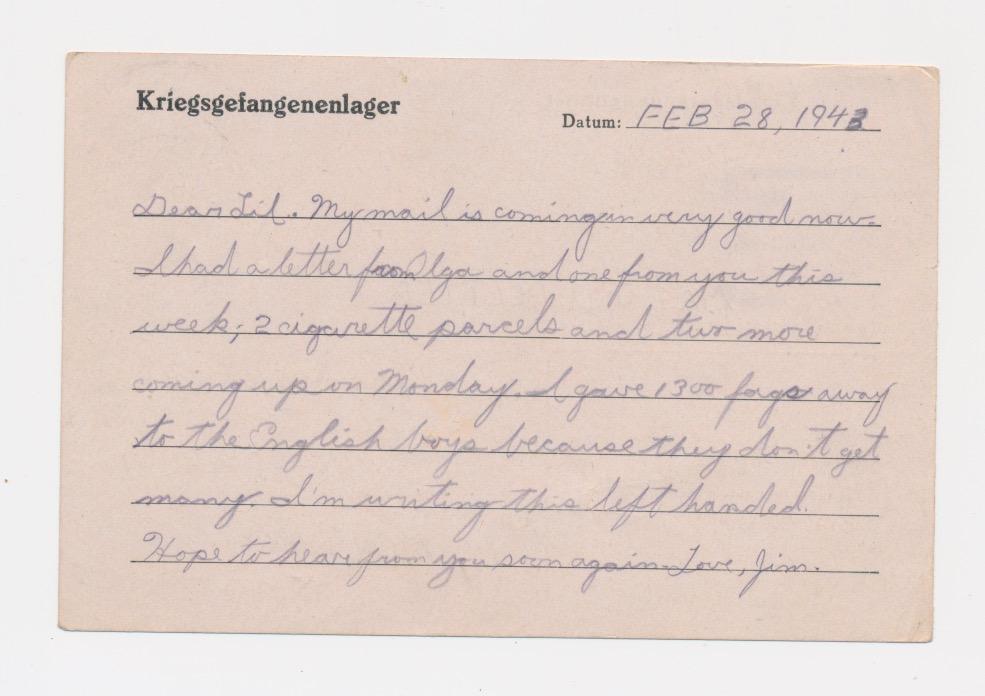 Kriegsgefangenenlager
Datum: FEB 28, 1943
Dear Lil. My mail is coming in very good now.
I had a letter from Olga and one from you this
week; 2 cigarette parcels and two more
coming up on Monday. I gave 1300 fags away
to the English boys because they don't get
many. I'm writing this left handed.
Hope to hear from you soon again. Love, Jim.